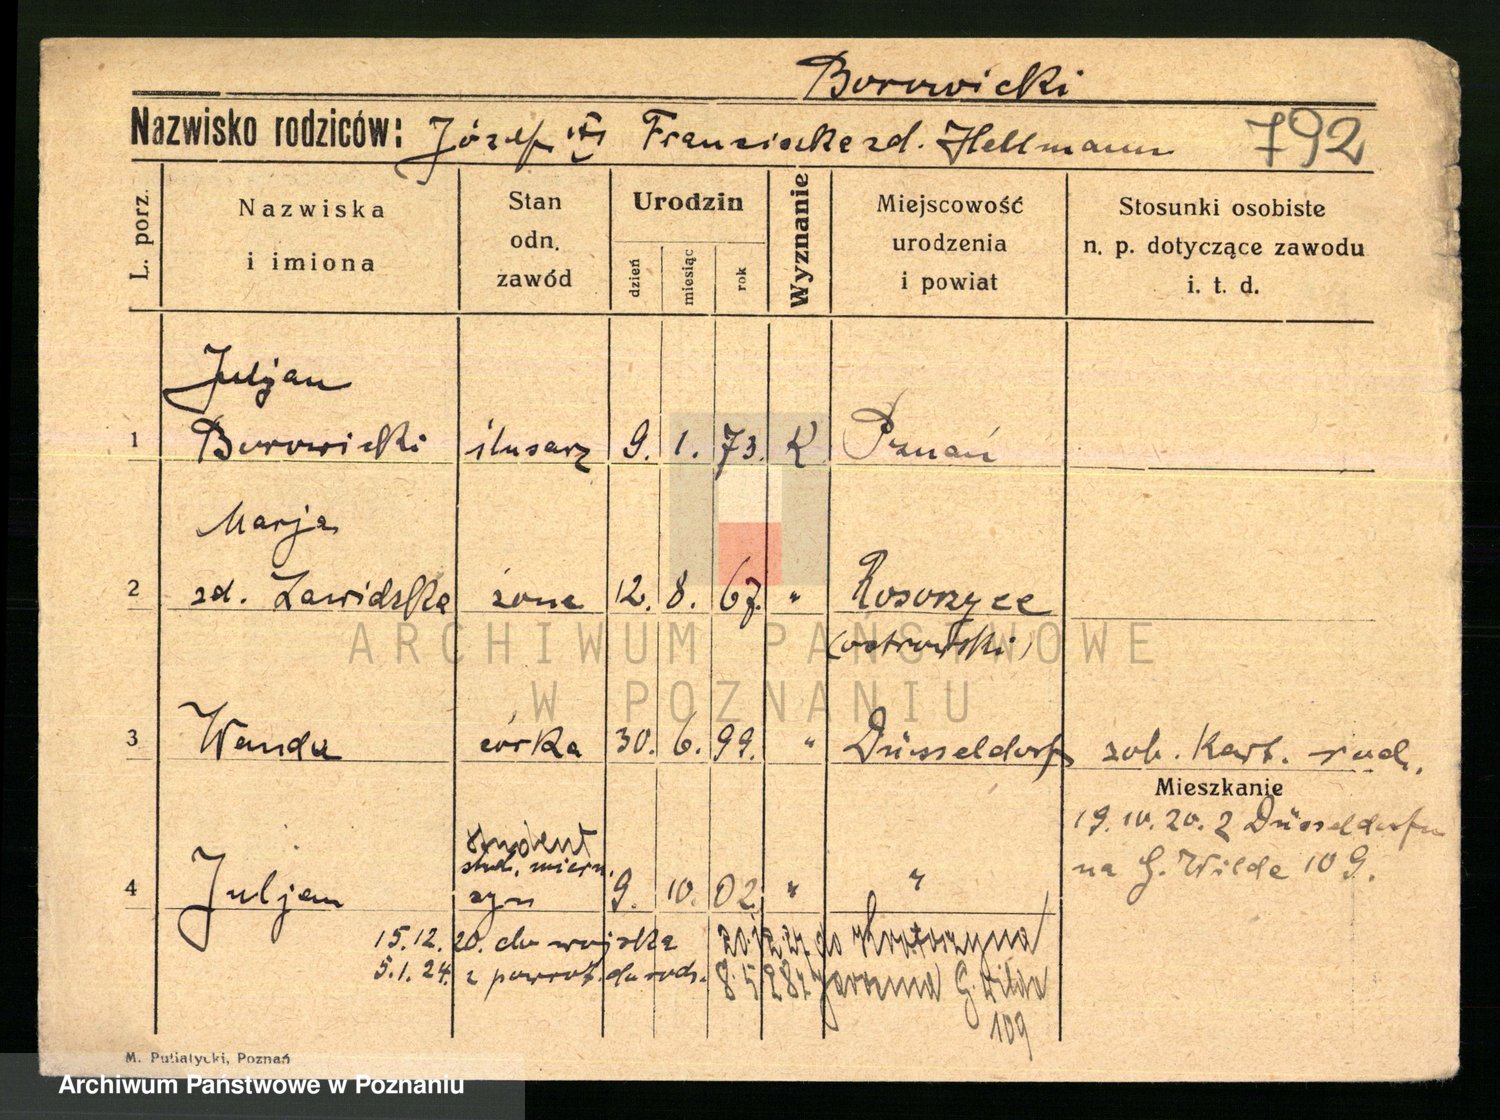 Borowicki
Nazwisko rodziców: Józef i Franziska zd. Hellmann 792
L. porz.
Nazwiska i imiona
Stan odn. zawód
Urodzin
dzień
miesiąc
rok
Wyznanie
Miejscowość urodzenia i powiat
Stosunki osobiste n. p. dotyczące zawodu i. t. d.
Juljan
1 Borowicki ślusarz 9. 1. 73. K Poznań
Marja
2 zd. Zawidzka żona 12. 8. 67. "
(ostrowski)
3 Wanda córka 30. 6. 99. " Düsseldorf zob. Kart. rod.
Mieszkanie
19.10.20. z Düsseldorfu
na G. Wilde 109.
student
stud.
4 Juljan syn 9. 10. 02. " "
15.12.20. do wojska do Krotoszyna
5.1.24. z powrot. do rodz. G. Wilde
109
M. Putiatycki, Poznań
ARCHIWUM PAŃSTWOWE
W POZNANIU
Archiwum Państwowe w Poznaniu